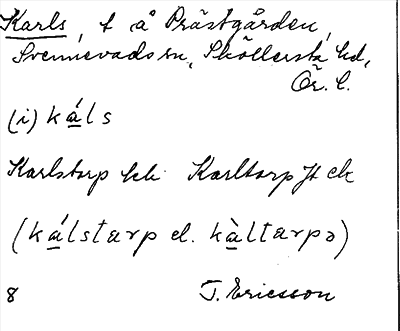 Karls, t å Prästgården,
Svennevads sn, Sköllersta hd,
Ör. l.
(i) káls
Karlstorp kk Karltorp Jt ek
(kálstarp el. kàltarpə)
8 T. Ericsson